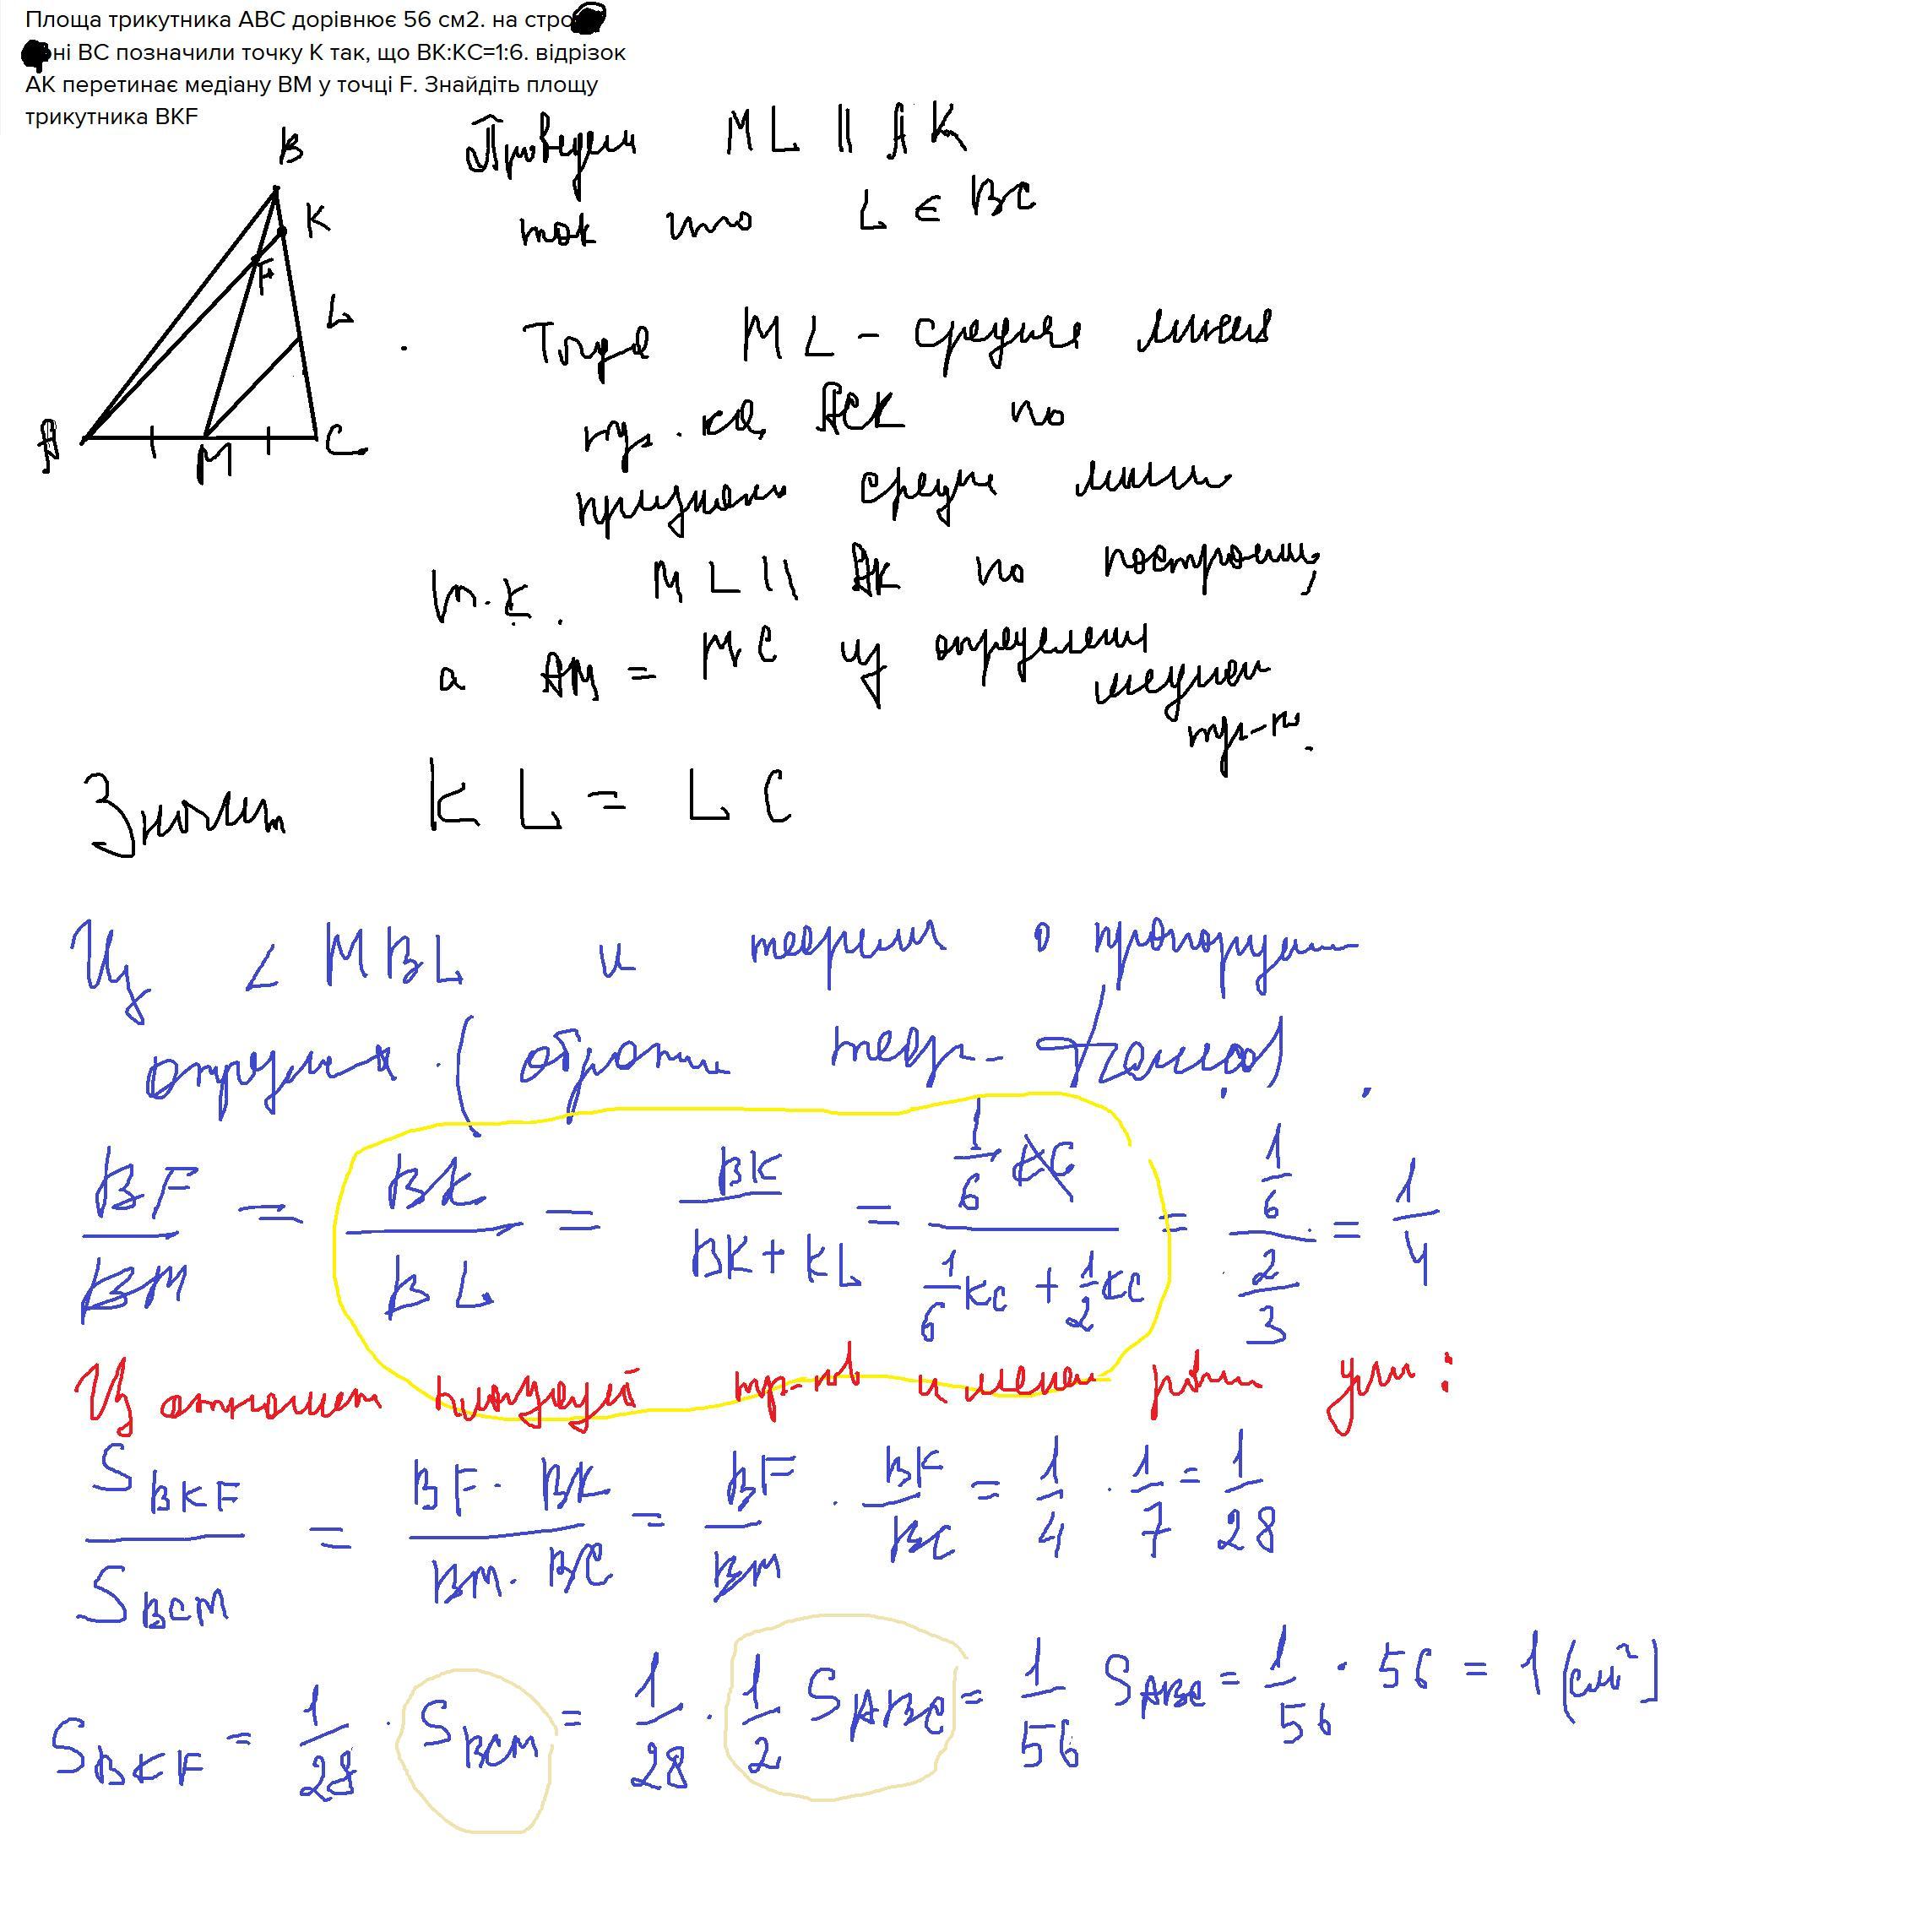 Площа трикутника ABC дорівнює 56 см2. на стро
ні BC позначили точку K так, що BK:KC=1:6. відрізок
AK перетинає медіану BM у точці F. Знайдіть площу
трикутника BKF
B
K
F
L
A
M
C
Проведем ML || AK
так что L ∈ BC
Тогда ML - средняя линия
тр. ка ACK по
признаку средн линии
т.к. ML || AK по построени,
а AM = MC из определени
медиан
тр-к.
Значит KL = LC
Из ∠ MBL и теоремы о пропорцион
отрезках (обратн теор- Фалеса)
BF/BM = BK/BL = BK/(BK+KL) = (1/6 KC)/(1/6 KC + 1/2 KC) = (1/6)/(2/3) = 1/4
Из отношен площадей тр-ков имеющ равн угл:
S BKF / S BCM = BF · BK / BM · BC = BF/BM · BK/BC = 1/4 · 1/7 = 1/28
S BKF = 1/28 · S BCM = 1/28 · 1/2 S ABC = 1/56 S ABC = 1/56 · 56 = 1 (см²)